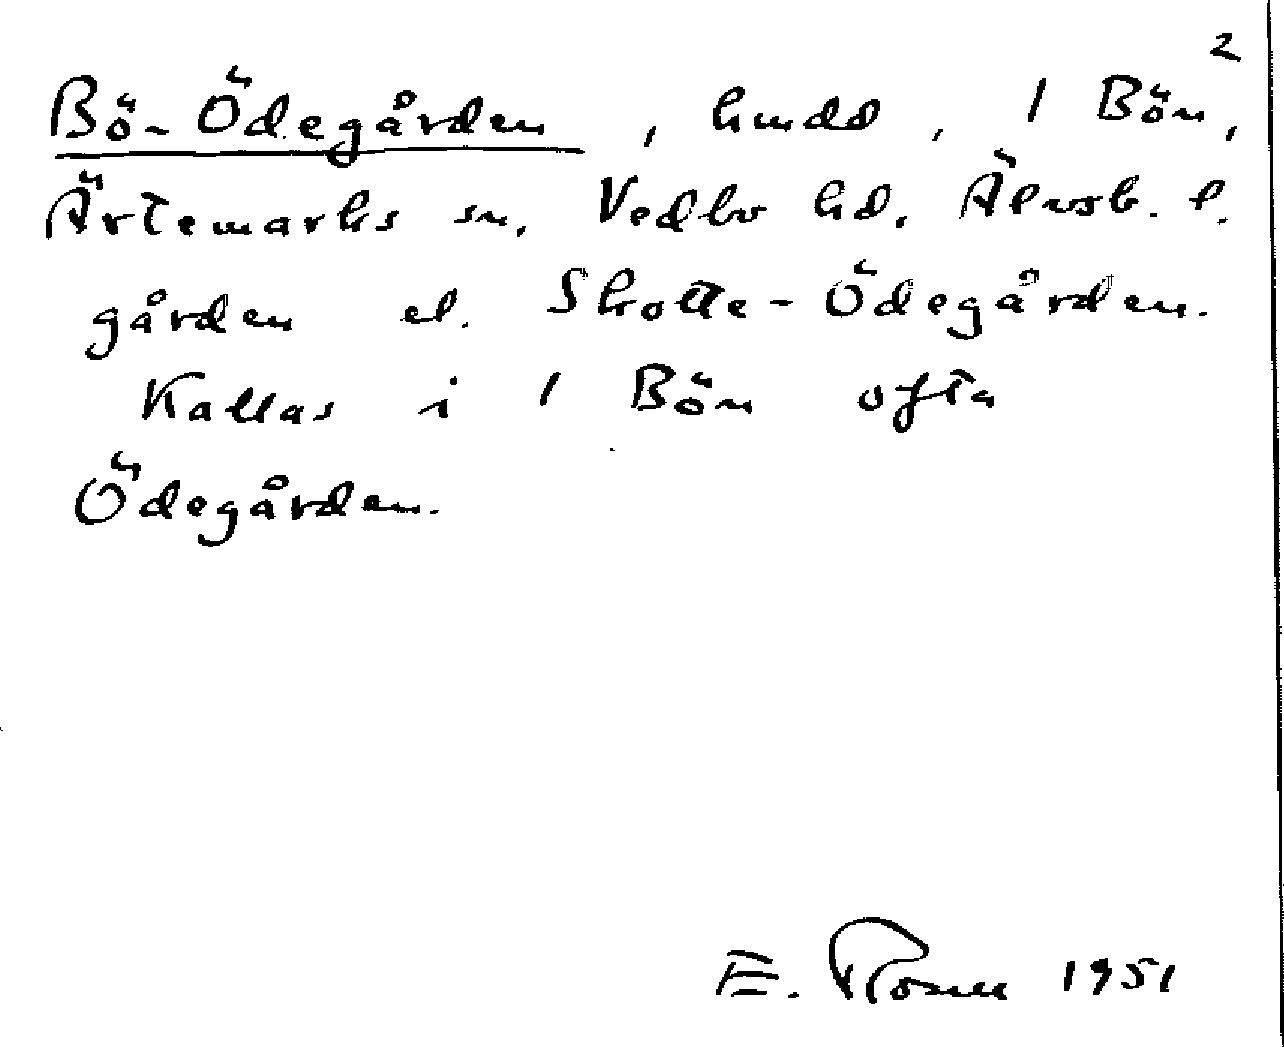 2
Bö-Ödegården, hmdd, 1 Bön,
Ärtemarks sn, Vedbo hd. Älvsb. l.
gården el. Skotte-Ödegården.
Kallas i 1 Bön ofta
Ödegården.
E. Rosell 1951